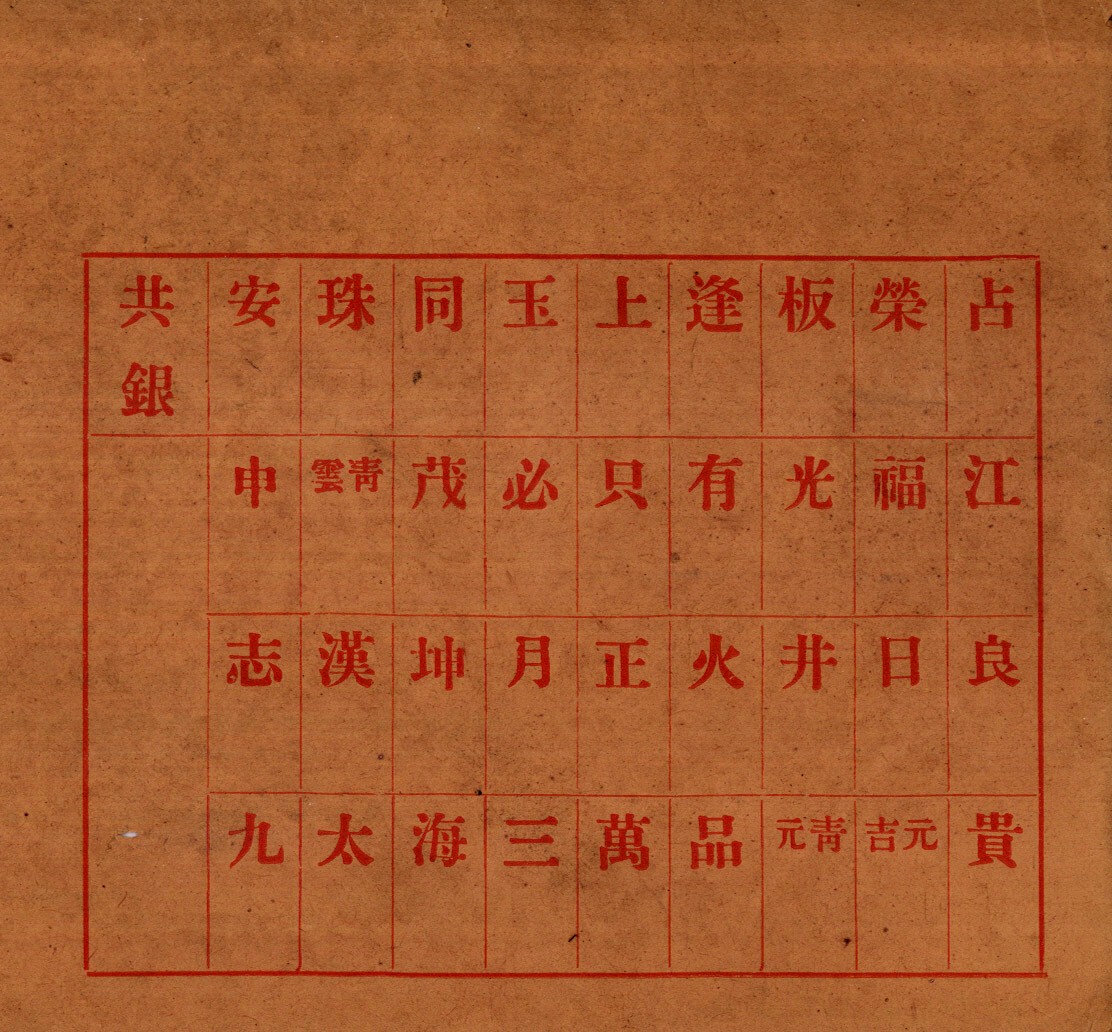 占 榮 板 逢 上 玉 同 珠 安 共銀
江 福 光 有 只 必 茂 靑雲 申
良 日 井 火 正 月 坤 漢 志
貴 元吉 靑元 品 萬 三 海 太 九